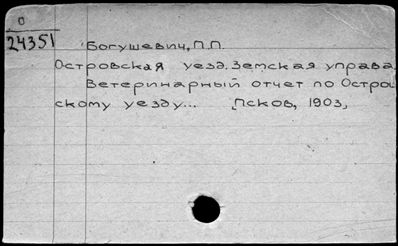 О
24351
Богушевич, П.П.
Островская уезд. Земская управа.
Ветеринарный отчет по Остров
скому уезду... Псков, 1903,